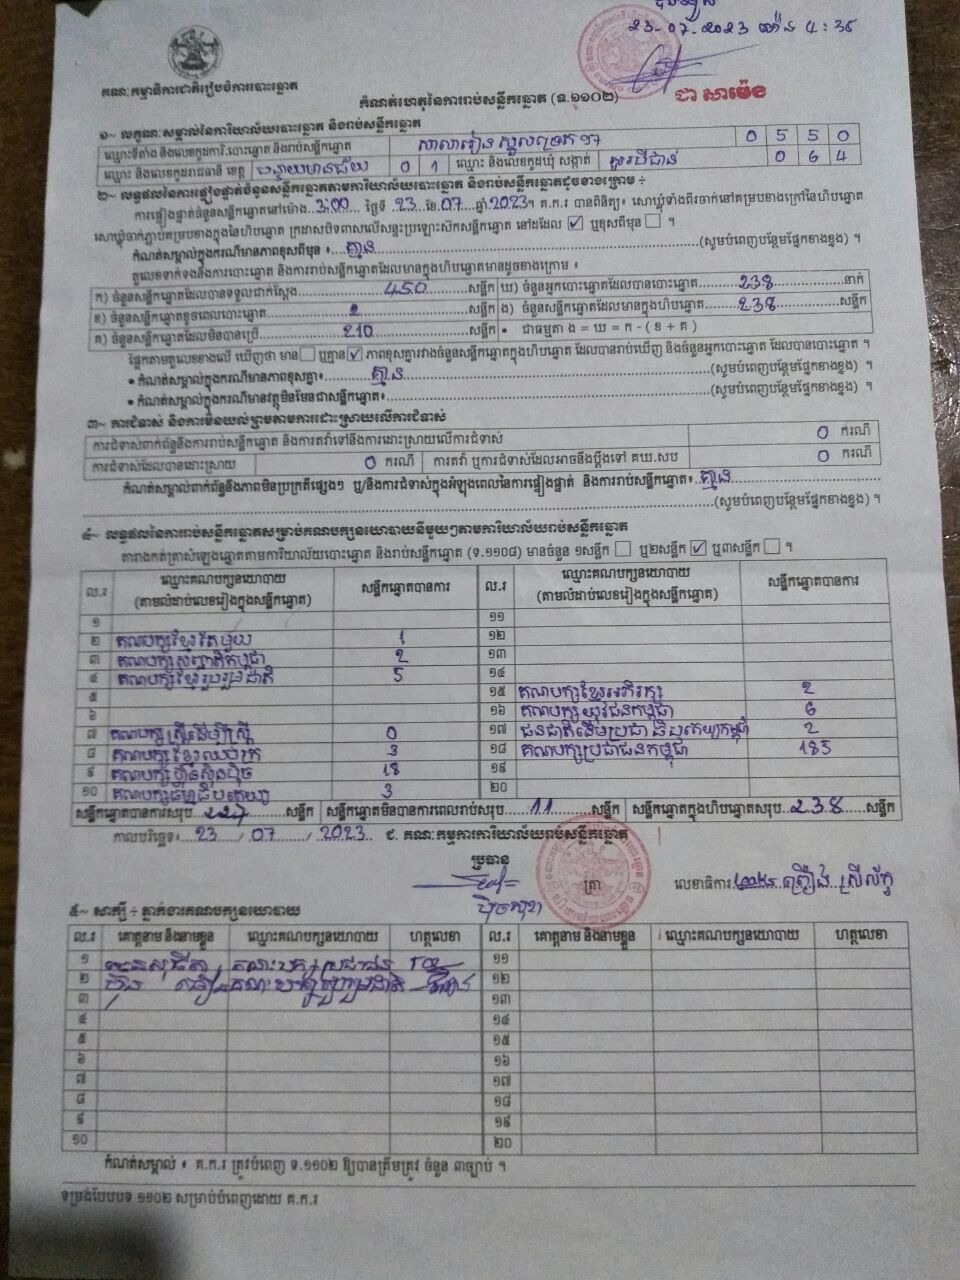 23-07-2023 ម៉ោង 4:35
គណៈកម្មាធិការជាតិរៀបចំការបោះឆ្នោត
កំណត់ហេតុនៃការរាប់សន្លឹកឆ្នោត (ទ.១១០២)
ជា សាម៉េន
១~ លក្ខណៈសម្គាល់នៃការិយាល័យបោះឆ្នោត និងរាប់សន្លឹកឆ្នោត
ឈ្មោះទីតាំង និងលេខកូដការិ.បោះឆ្នោត និងរាប់សន្លឹកឆ្នោត សាលារៀន 0 5 5 0
ឈ្មោះ និងលេខកូដរាជធានី ខេត្ត បន្ទាយមានជ័យ 0 1 ឈ្មោះ និងលេខកូដឃុំ សង្កាត់ អូរបីជាន់ 0 6 4
២~ លទ្ធផលនៃការផ្ទៀងផ្ទាត់ចំនួនសន្លឹកឆ្នោតតាមការិយាល័យបោះឆ្នោត និងរាប់សន្លឹកឆ្នោតដូចខាងក្រោម ÷
ការផ្ទៀងផ្ទាត់ចំនួនសន្លឹកឆ្នោតនៅម៉ោង 3:00 ថ្ងៃទី 23 ខែ 07 ឆ្នាំ 2023 ។ គ.ក.រ បានពិនិត្យ ៖ សោឃ្លុំទាំងពីរចាក់នៅគម្របខាងក្រៅនៃហិបឆ្នោត
សោឃ្លុំចាក់ភ្ជាប់គម្របខាងក្នុងនៃហិបឆ្នោត ក្រដាសបិទពាសលើសន្ទះប្រឡោះស៊កសន្លឹកឆ្នោត នៅដដែល ☑ ឬខុសពីមុន ☐ ។
កំណត់សម្គាល់ក្នុងករណីមានភាពខុសពីមុន ៖ គ្មាន (សូមបំពេញបន្ថែមផ្នែកខាងខ្នង) ។
តួលេខទាក់ទងនឹងការបោះឆ្នោត និងការរាប់សន្លឹកឆ្នោតដែលមានក្នុងហិបឆ្នោតមានដូចខាងក្រោម ៖
ក) ចំនួនសន្លឹកឆ្នោតដែលបានទទួលជាក់ស្តែង 450 សន្លឹក ឃ) ចំនួនអ្នកបោះឆ្នោតដែលបានបោះឆ្នោត 238 នាក់
ខ) ចំនួនសន្លឹកឆ្នោតខូចពេលបោះឆ្នោត 2 សន្លឹក ង) ចំនួនសន្លឹកឆ្នោតដែលមានក្នុងហិបឆ្នោត 238 សន្លឹក
គ) ចំនួនសន្លឹកឆ្នោតដែលមិនបានប្រើ 210 សន្លឹក • ជាធម្មតា ង = ឃ = ក - ( ខ + គ )
ផ្អែកតាមតួលេខខាងលើ ឃើញថា មាន ☐ ឬគ្មាន ☑ ភាពខុសគ្នារវាងចំនួនសន្លឹកឆ្នោតក្នុងហិបឆ្នោត ដែលបានរាប់ឃើញ និងចំនួនអ្នកបោះឆ្នោត ដែលបានបោះឆ្នោត ។
• កំណត់សម្គាល់ក្នុងករណីមានភាពខុសគ្នា៖ គ្មាន (សូមបំពេញបន្ថែមផ្នែកខាងខ្នង) ។
• កំណត់សម្គាល់ក្នុងករណីមានវត្ថុមិនមែនជាសន្លឹកឆ្នោត៖ (សូមបំពេញបន្ថែមផ្នែកខាងខ្នង) ។
៣~ ការជំទាស់ និងការមិនយល់ព្រមតាមការដោះស្រាយលើការជំទាស់
ការជំទាស់ពាក់ព័ន្ធនឹងការរាប់សន្លឹកឆ្នោត និងការតវ៉ាទៅនឹងការដោះស្រាយលើការជំទាស់ 0 ករណី
ការជំទាស់ដែលបានដោះស្រាយ 0 ករណី ការតវ៉ា ឬការជំទាស់ដែលអាចនឹងប្តឹងទៅ គឃ.សប 0 ករណី
កំណត់សម្គាល់ពាក់ព័ន្ធនឹងភាពមិនប្រក្រតីផ្សេងៗ ឬ/និងការជំទាស់ក្នុងអំឡុងពេលនៃការផ្ទៀងផ្ទាត់ និងការរាប់សន្លឹកឆ្នោត៖ គ្មាន
(សូមបំពេញបន្ថែមផ្នែកខាងខ្នង) ។
៤~ លទ្ធផលនៃការរាប់សន្លឹកឆ្នោតសម្រាប់គណបក្សនយោបាយនីមួយៗតាមការិយាល័យរាប់សន្លឹកឆ្នោត
តារាងកត់ត្រាសំឡេងឆ្នោតតាមការិយាល័យបោះឆ្នោត និងរាប់សន្លឹកឆ្នោត (ទ.១១០៨) មានចំនួន ១សន្លឹក ☐ ឬ២សន្លឹក ☑ ឬ៣សន្លឹក ☐ ។
ល.រ ឈ្មោះគណបក្សនយោបាយ (តាមលំដាប់លេខរៀងក្នុងសន្លឹកឆ្នោត) សន្លឹកឆ្នោតបានការ ល.រ ឈ្មោះគណបក្សនយោបាយ (តាមលំដាប់លេខរៀងក្នុងសន្លឹកឆ្នោត) សន្លឹកឆ្នោតបានការ
១ ១១
២ គណបក្សខ្មែរតែមួយ 1 ១២
៣ គណបក្សសញ្ជាតិកម្ពុជា 2 ១៣
៤ គណបក្សខ្មែររួបរួមជាតិ 5 ១៤
៥ ១៥ គណបក្សខ្មែរអភិរក្ស 2
៦ ១៦ គណបក្សយុវជនកម្ពុជា 6
៧ គណបក្សស្ត្រីដើម្បីស្ត្រី 0 ១៧ ជនជាតិដើមប្រជាធិបតេយ្យកម្ពុជា 2
៨ គណបក្សខ្មែរឈប់ក្រ 3 ១៨ គណបក្សប្រជាជនកម្ពុជា 185
៩ គណបក្សហ្វ៊ុនស៊ិនប៉ិច 18 ១៩
១០ គណបក្សធម្មាធិបតេយ្យ 3 ២០
សន្លឹកឆ្នោតបានការសរុប 227 សន្លឹក សន្លឹកឆ្នោតមិនបានការពេលរាប់សរុប 11 សន្លឹក សន្លឹកឆ្នោតក្នុងហិបឆ្នោតសរុប 238 សន្លឹក
កាលបរិច្ឆេទ៖ 23 / 07 / 2023 ជ. គណៈកម្មការការិយាល័យរាប់សន្លឹកឆ្នោត
ប្រធាន
ត្រា លេខាធិការ គ្រឿង ស្រីល័ក្ខ
ប៉ិចសុខា
៥~ សាក្សី ÷ ភ្នាក់ងារគណបក្សនយោបាយ
ល.រ គោត្តនាម និងនាមខ្លួន ឈ្មោះគណបក្សនយោបាយ ហត្ថលេខា ល.រ គោត្តនាម និងនាមខ្លួន ឈ្មោះគណបក្សនយោបាយ ហត្ថលេខា
១ គណៈបក្សប្រជាជន ១១
២ ១២
៣ ១៣
៤ ១៤
៥ ១៥
៦ ១៦
៧ ១៧
៨ ១៨
៩ ១៩
១០ ២០
កំណត់សម្គាល់ ៖ គ.ក.រ ត្រូវបំពេញ ទ.១១០២ ឱ្យបានត្រឹមត្រូវ ចំនួន ៣ច្បាប់ ។
ទម្រង់បែបបទ ១១០២ សម្រាប់បំពេញដោយ គ.ក.រ